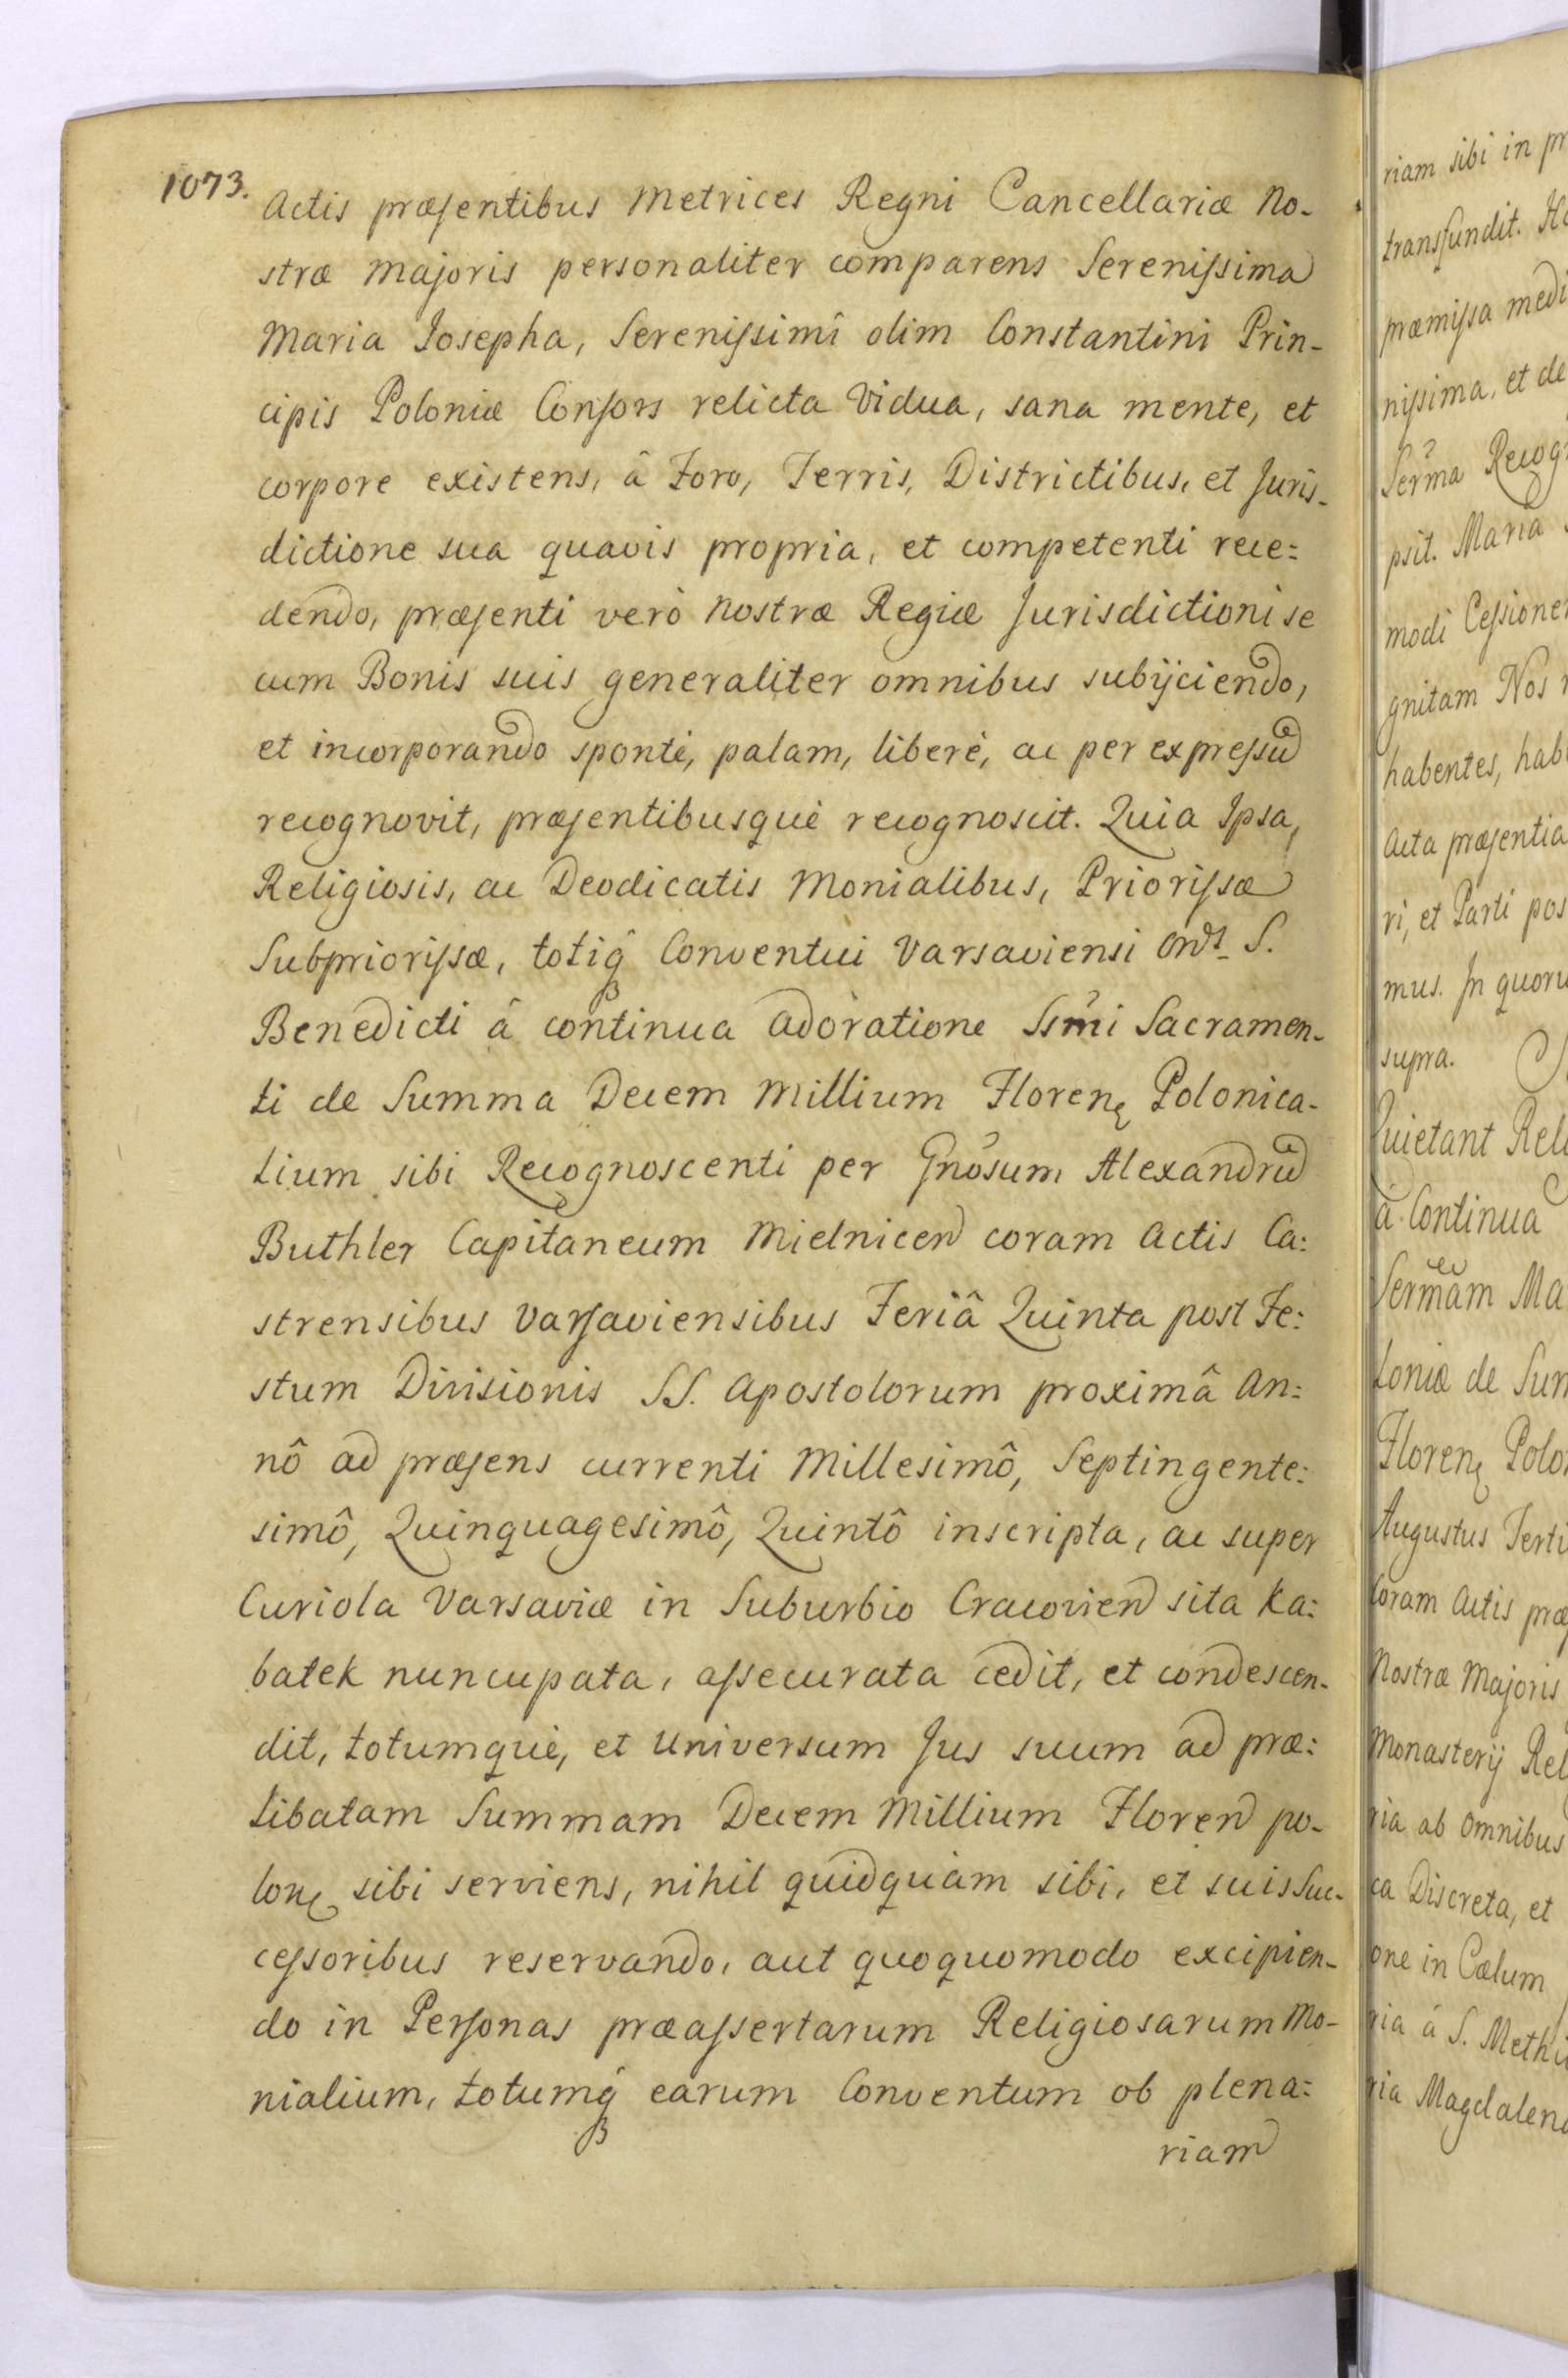 1073.
Actis præsentibus Metrices Regni Cancellariæ No-
stræ Majoris personaliter comparens Serenissima
Maria Josepha, Serenissimi olim Constantini Prin-
cipis Poloniæ Consors relicta Vidua, sana mente, et
corpore existens, â Foro, Terris, Districtibus, et Juris-
dictione sua quavis propria, et competenti rece:
dendo, præsenti verò Nostræ Regiæ Jurisdictioni se
cum Bonis suis generaliter omnibus subijciendo,
et incorporando spontè, palam, liberè, ac per expressũ
recognovit, præsentibusquè recognoscit. Quia Ipsa,
Religiosis, ac Deodicatis Monialibus, Priorissæ
Subpriorissæ, totiq́ Conventui Varsaviensi Ordis S.
Benedicti â continua adoratione SSmi Sacramen-
ti de Summa Decem Millium Floren Polonica-
lium sibi Recognoscenti per Gnosum Alexandrũ
Buthler Capitaneum Mielnicen coram Actis Ca:
strensibus Varsaviensibus Feriâ Quinta post Fe:
stum Divisionis SS. Apostolorum proximâ An:
nô ad præsens currenti Millesimô, Septingente:
simô, Quinquagesimô, Quintô inscripta, ac super
Curiola Varsaviæ in Suburbio Cracovien sita Ka:
batek nuncupata, assecurata cedit, et condescen-
dit, totumquè, et universum Jus suum ad præ:
libatam Summam Decem Millium Floren po-
lon sibi serviens, nihil quidquam sibi, et suis Suc-
cessoribus reservando, aut quoquomodo excipien-
do in Personas præassertarum Religiosarum Mo-
nialium, totumq́ earum Conventum ob plena:
riam
riam sibi in pr
transfundit.
præmissa medi
nissima, et de
Serma Recog
psit. Maria
modi Cessione
gnitam Nos
habentes, hab
Acta præsentia
ri, et Parti pos
mus. In quoru
supra.
Quietant Rel
â Continua
Sermam Ma
loniæ de Sum
Floren Polo
Augustus Terti
Coram Actis præ
Nostræ Majoris
Monasterij Rel
ria ab omnibus
ca Discreta, et
one in Cælum
ria â S. Methi
ria Magdalena